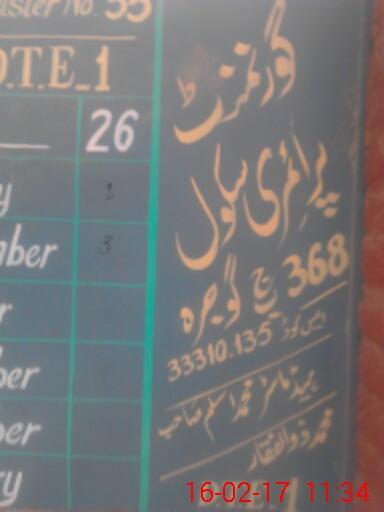 ister No. 55
D.T.E_1
26
y
1
mber
3
r
ber
ber
ry
گورنمنٹ
پرائمری سکول
368 ج گوجرہ
ایمس کوڈ 33310.135
ہیڈ ماسٹر محمد اسلم صاحب
محمد ذوالفقار
16-02-17 11:34